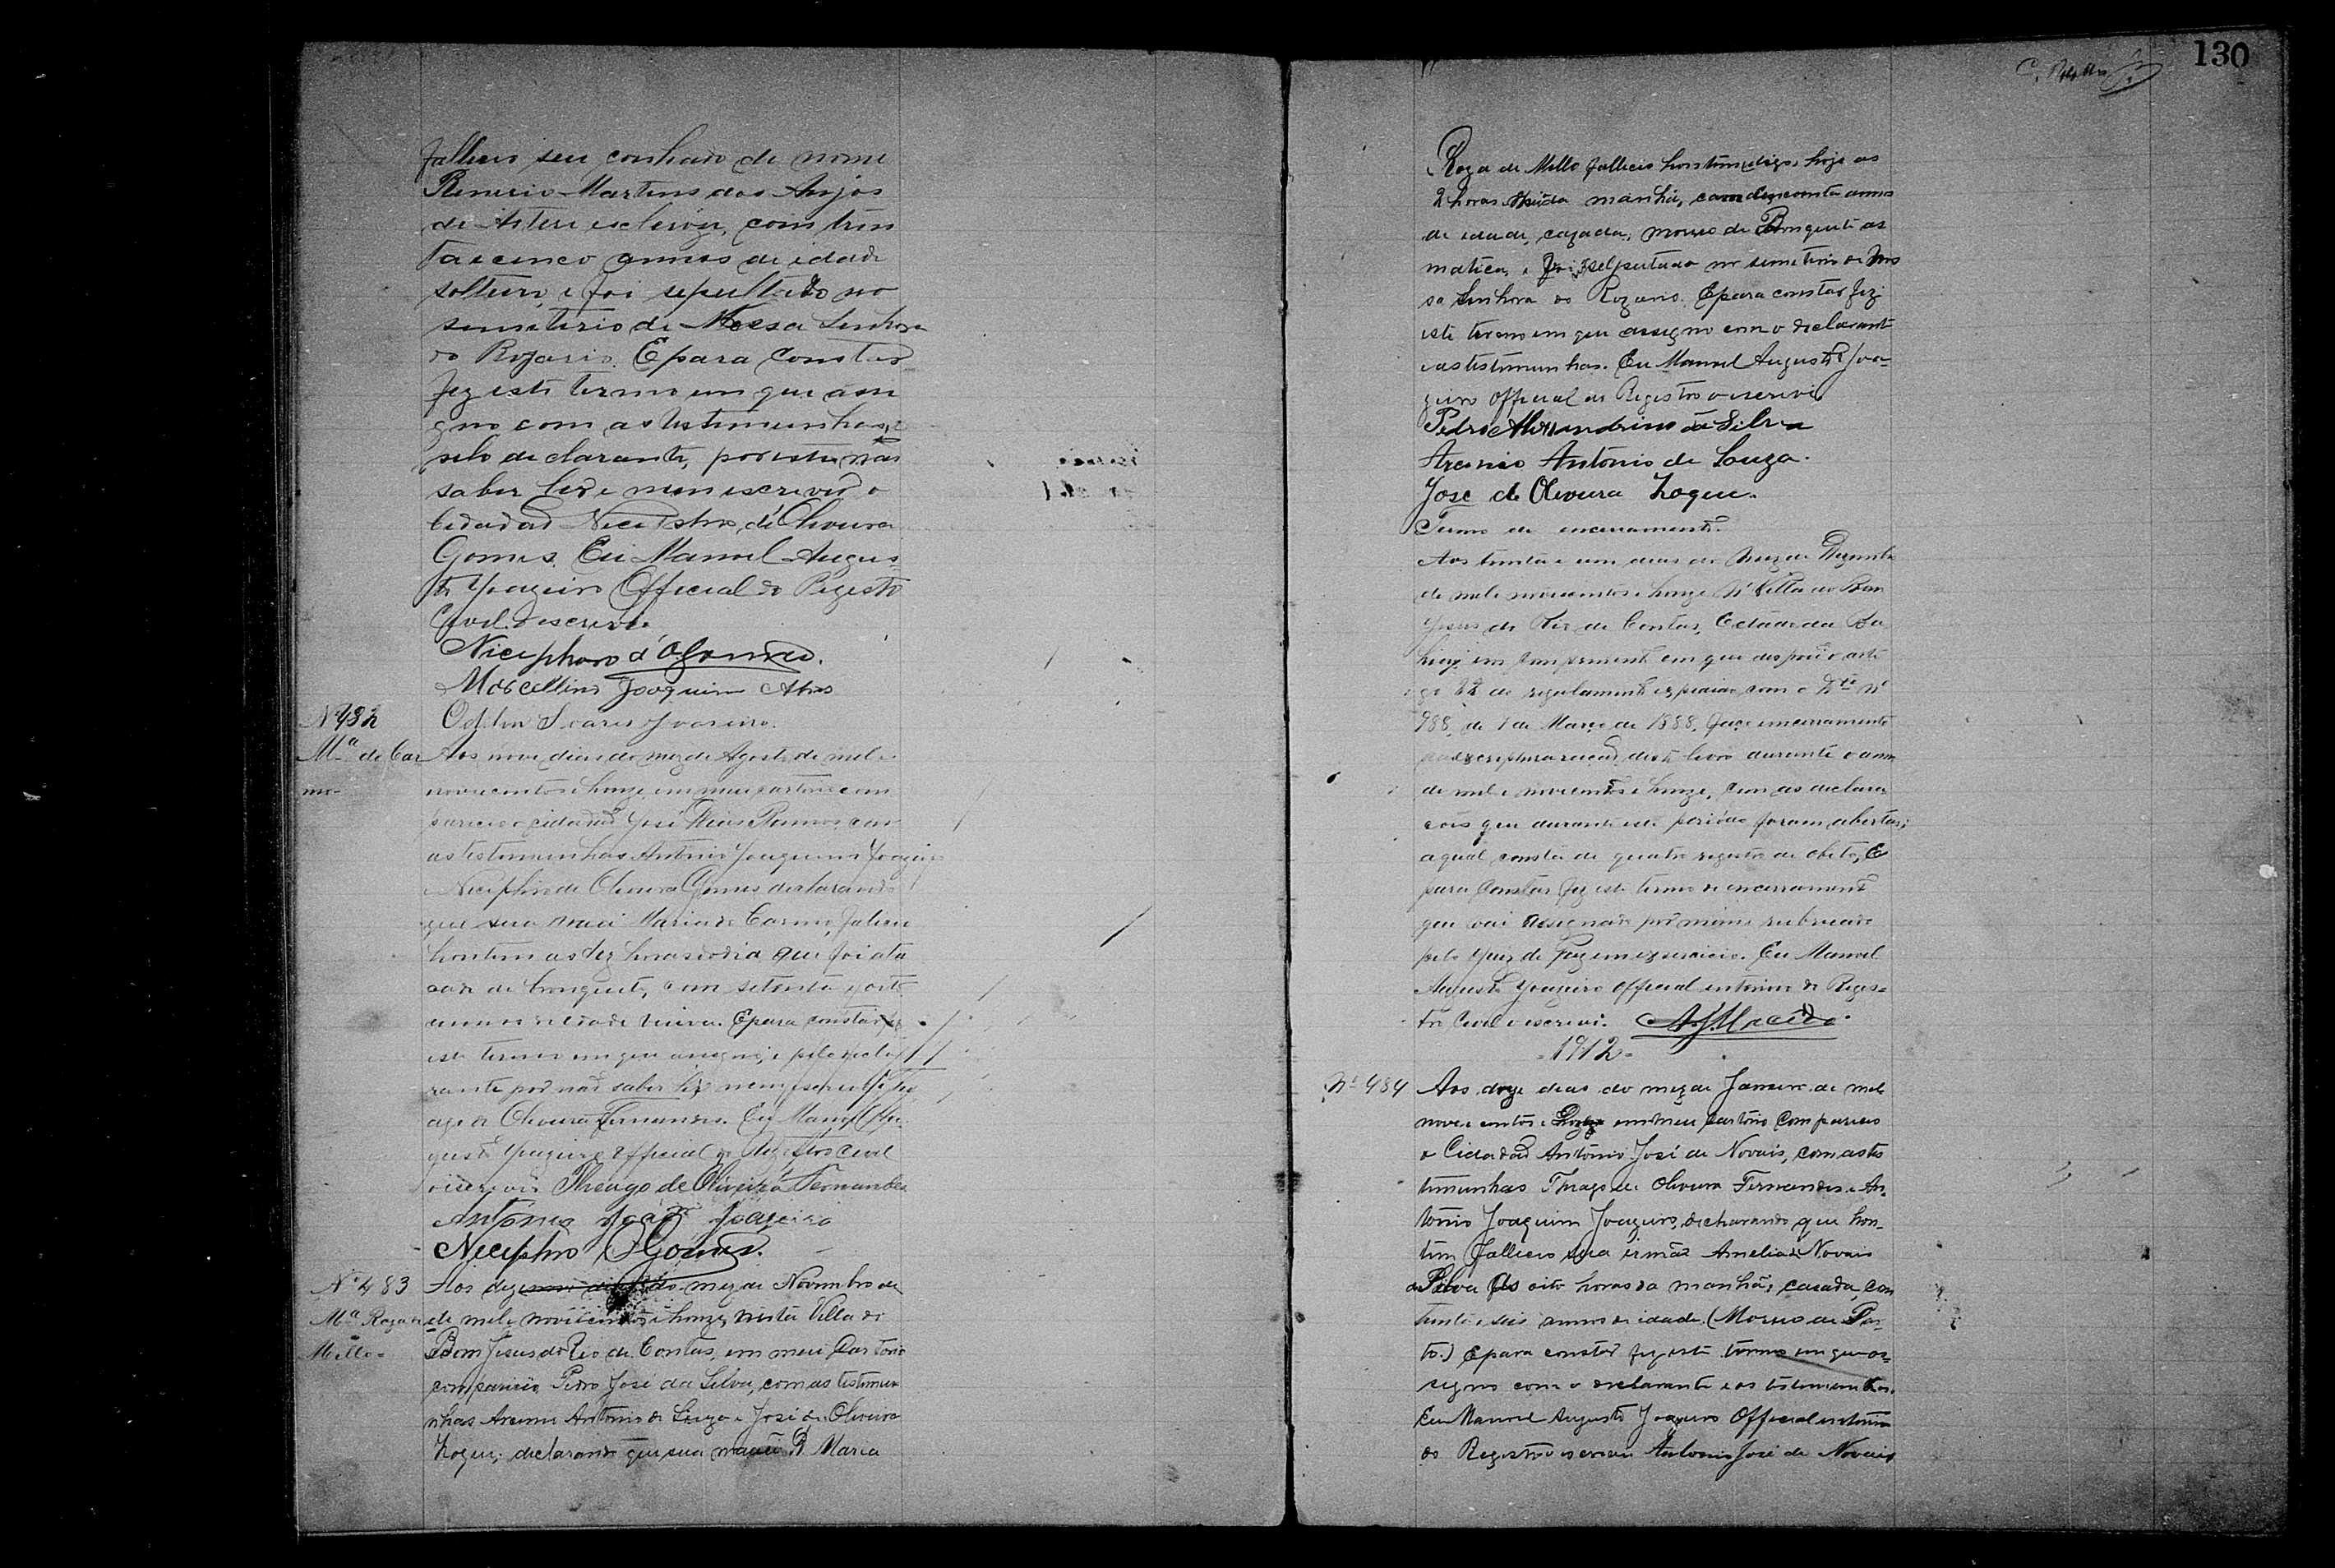 falleceo seu cunhado de nome
Martins dos Anjos
de com trin
ta e cinco annos de idade
solteiro, e foi sepultado no
semiterio de Nossa Senhora
do Rozario. E para constar
fez este termo em que assi
gno com as testemunhas, e
pelo declarante, por este não
saber ler e nem escrever o
Cidadão d'Oliveira
Gomes. Eu Manoel Augus-
to Joazeiro Official do Registo
Civil o escrevi.
Nicephoro d'O Gomes.
Marcellino Joaquim Alves
Odilon Soares Joazeiro.
Nº 482
Mª do Car
mo-
Aos nove dias do mez de Agosto de mil e
novecentos e honze, em meu cartorio com
pareceo o cidadão José Ramos, com
as testemunhas Antonio Joaquim Joazeiro
Nicephoro de Oliveira Gomes declarando
que sua mai Maria do Carmo, faleceu
hontem as dez horas do dia que foi ata
cada de bronquite, com setenta e oito
annos de idade viuva. E para constar fez
este termo em que assigno, e pelo decla
rante por não saber ler nem escrever Thi
ago de Oliveira Fernandes. Eu Manoel Au-
gusto Joazeiro Official do Registro Civil
o escrevi. Theago de Oliveira Fernandes
Antonio Joaq Joazeiro
Nicephoro O Gomes.
Nº 483
Mª Roza de
Mello-
Aos deze mez de Novembro de
de mil e novecentos e honze, nesta Villa do
Bom Jesus do Rio de Contas, em meu Cartorio
compareceo Pedro José da Silva, com as testemu
nhas Antonio de Souza e José de Oliveira
declarando que sua D. Maria
130
Roza de Mello falleceo hontem, digo, hoje as
2 horas da manhã, com cincoenta annos
de idade, cazada, morreo de Bronquite as
matica, e foi selpultada no semeterio de Nos
sa Senhora do Rozario. E para constar fez
este termo em que assigno com o declarante
e as testemunhas. Eu Manoel Augusto Joa-
zeiro Official do Registro o escrevi
Pedro Alexandrino da Silva
Antonio de Souza.
José de Oliveira
Termo de encerramento.
Aos trinta e um dias do mez de Dezembro
de mil e novecentos e honze N'Villa do Bom
Jesus do Rio de Contas, Estado da Ba
hia, em comprimento em que dispoe o arti
go 22 do regulamento expedido com o Dto nº
988, de 7 de Março de 1888, faço encerramento
da escripturacão deste livro durante o anno
de mil e novecentos e honze, com as declara
cois que durante este periodo foram abertas;
a qual consta de quatro registro de obito, E
para constar fez este termo de encerramento
que vai assignado por mim e rubricado
pelo Juiz de Paz em exsercicio. Eu Manoel
Augusto Joazeiro Official interino do Regis-
tro Civil o escrevi.
-1912-
Nº 484
Aos doze dias do mez de Janeiro de mil
novecentos e em meu Cartorio compareceo
o Cidadão Antonio José de Novais, com as tes
temunhas Thiago de Oliveira Fernandes e An-
tonio Joaquim Joazeiro, declarando que hon-
tem falleceo sua irmã Amelia de Novais
da Silva As oito horas da manhã, casada, com
trinta e seis annos de idade. (Morreo de Par-
to.) E para constar fez este termo em que as-
signo com o declarante e as testemunhas.
Eu Manoel Augusto Joazeiro Official interino
do Registro o escrevi Antonio José de Novais